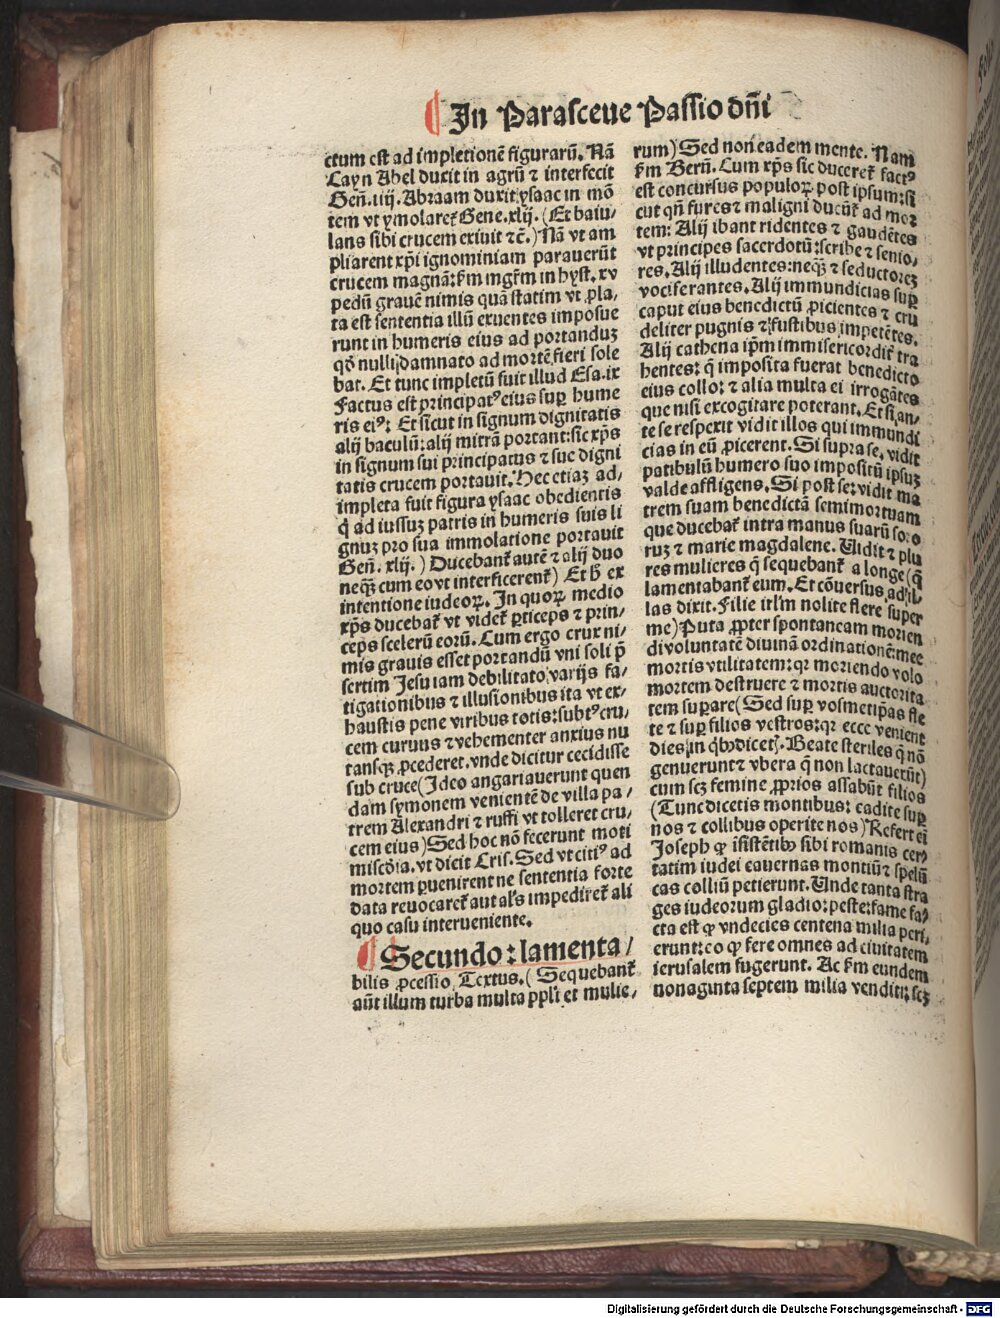 ¶ In Parasceue Passio dn̄i
ctum est ad impletionē figurarū. Nā
Cayn Abel duxit in agrū ⁊ interfecit
Gen̄. iiij. Abraam duxit ysaac in mō
tem vt ymolaret̄ Gene. xlij. (Et baiu/
lans sibi crucem exiuit ⁊c̄.) Nā vt am
pliarent xp̄i ignominiam parauerūt
crucem magnā: s̄m mgr̄m in hyst. xv
pedū grauē nimis quā statim vt ꝓla/
ta est sententia illū exuentes imposue
runt in humeris eius ad portanduꝫ
qd̄ nulli damnato ad mortē fieri sole
bat. Et tunc impletū fuit illud Esa. ix
Factus est principatꝰ eius suꝑ hume
ris eiꝰ: Et sicut in signum dignitatis
alij baculū: alij mitrā portant: sic xp̄s
in signum sui principatus ⁊ sue digni
tatis crucem portauit. Hec etiaꝫ ad/
impleta fuit figura ysaac obedientis
q̄ ad iussuꝫ patris in humeris suis li
gnuꝫ pro sua immolatione portauit
Gen̄. xlij.) Ducebant̄ autē ⁊ alij duo
neqꝫ cum eo vt interficerent̄) Et h̄ ex
intentione iudeoꝝ. In quoꝝ medio
xp̄s ducebat̄ vt videt̄ ꝑticeps ⁊ prin/
ceps scelerū eorū. Cum ergo crux ni/
mis grauis esset portandū vni soli p̄
sertim Jesu iam debilitato varijs fa/
tigationibus ⁊ illusionibus ita vt ex/
haustis pene viribus totis: subtꝰ cru/
cem curuus ⁊ vehementer anxius nu
tansqꝫ ꝓcederet. vnde dicitur cecidisse
sub cruce (Ideo angariauerunt quen
dam symonem venientē de villa pa/
trem Alexandri ⁊ ruffi vt tolleret cru/
cem eius) Sed hoc nō fecerunt moti
miscd̄ia. vt dicit Cris. Sed vt citiꝰ ad
mortem ꝑuenirent ne sententia forte
data reuocaret̄ aut al̄s impediret̄ ali
quo casu interueniente.
¶ Secundo: lamenta/
bilis ꝓcessio. Textus. (Sequebant̄
aūt illum turba multa pplī et mulie/
rum) Sed non eadem mente. Nam
s̄m Bern̄. Cum xp̄s sic duceret̄ factꝰ
est concursus populoꝝ post ipsum: si
cut qn̄ fures ⁊ maligni ducūt̄ ad mor
tem: Alij ibant ridentes ⁊ gaudētes
vt principes sacerdotū: scribe ⁊ senio/
res. Alij illudentes: neqꝫ ⁊ seductoreꝫ
vociferantes. Alij immundicias suꝑ
caput eius benedictū ꝓicientes ⁊ cru
deliter pugnis ⁊ fustibus impetētes.
Alij cathena ip̄m immisericordit̄ tra
hentes: q̄ imposita fuerat benedicto
eius collo: ⁊ alia multa ei irrogātes
que nisi excogitare poterant. Et si an/
te se respexit vidit illos qui immundi
cias in eū ꝓicerent. Si supra se, vidit
patibulū humero suo impositū ipsuꝫ
valde affligens. Si post se: vidit ma
trem suam benedictā semimortuam
que ducebat̄ intra manus suarū soro
ruꝫ ⁊ marie magdalene. Vidit ⁊ plu
res mulieres q̄ sequebant̄ a longe (q̄
lamentabant̄ eum. Et cōuersus ad il/
las dixit. Filie irl̄m nolite flere super
me) Puta ꝓpter spontaneam morien
di voluntatē diuinā ordinationē: mee
mortis vtilitatem: qꝛ moriendo volo
mortem destruere ⁊ mortis auctorita
tem suꝑare (Sed suꝑ vosmetip̄as fle
te ⁊ suꝑ filios vestros: qꝛ ecce venient
dies in qͥbꝰ dicet̄. Beate steriles q̄ nō
genuerunt ⁊ vbera q̄ non lactauerūt)
cum scꝫ femine ꝓprios assabūt filios
(Tunc dicetis montibus: cadite suꝑ
nos ⁊ collibus operite nos) Refert ei
Joseph ꝙ īsistētibꝰ sibi romanis cer/
tatim iudei cauernas montiū ⁊ spelū
cas colliū petierunt. Unde tanta stra
ges iudeorum gladio: peste: fame fa/
cta est ꝙ vndecies centena milia peri/
erunt: eo ꝙ fere omnes ad ciuitatem
ierusalem fugerunt. Ac s̄m eundem
nonaginta septem milia venditi: scꝫ
Digitalisierung gefördert durch die Deutsche Forschungsgemeinschaft - DFG